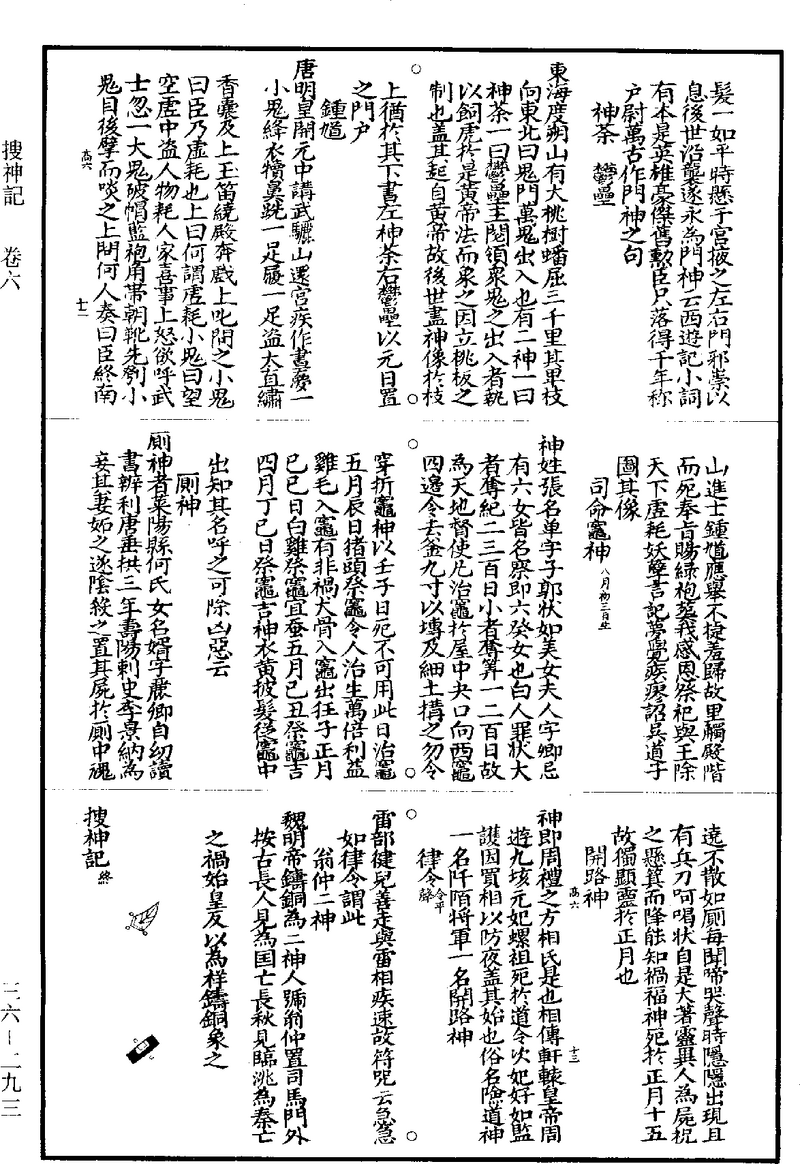 髮一如平時懸于宮掖之左右門邪祟以
息後世沿襲遂永為門神云西遊記小詞
有本是英雄豪傑舊勳臣只落得千年称
户尉萬古作門神之句
神荼　鬱壘
東海度朔山有大桃樹蟠屈三千里其卑枝
向東北曰鬼門萬鬼出入也有二神一曰
神荼一曰鬱壘主閱領衆鬼之出入者執
以飼虎於是黃帝法而象之因立桃板之
制也蓋其起自黃帝故後世畫神像於板
上猶於其下書左神荼右鬱壘以元日置
之門户
鍾馗
唐明皇開元中講武驪山還宮疾作晝夢一
小鬼絳衣犢鼻跣一足履一足盜太真繡
香囊及上玉笛繞殿奔戲上叱問之小鬼
曰臣乃虛耗也上曰何謂虛耗小鬼曰望
空虛中盜人物耗人家喜事上怒欲呼武
士忽一大鬼破帽藍袍角帶朝靴先刳小
鬼目後擘而啖之上問何人奏曰臣終南
高六
十二
山進士鍾馗應舉不捷羞歸故里觸殿階
而死奉旨賜綠袍塟我感恩祭祀與王除
天下虛耗妖孽言記夢覺疾瘳詔吳道子
圖其像
司命竈神 八月初三日生
神姓張名单字子郭状如美女夫人字卿忌
有六女皆名察即六癸女也白人罪状大
者奪紀二三百日小者奪筭一二百日故
為天地督使凡治竈於屋中央口向西竈
四邊令去釜九寸以塼及細土搆之勿令
穿折竈神以壬子日死不可用此日治竈
五月辰日猪頭祭竈令人治生萬倍利益
雞毛入竈有非禍犬骨入竈出狂子正月
巳巳日白雞祭竈宜蚕五月己丑祭竈吉
四月丁巳日祭竈吉神衣黄披髮從竈中
出知其名呼之可除凶惡云
厠神
厠神者莱陽縣何氏女名媚字麗卿自幼讀
書辨利唐垂拱三年壽陽刺史李景納為
妾其妻妬之遂陰殺之置其屍於厠中魂
遶不散如厠每聞啼哭聲時隱隱出現且
有兵刀呵喝状自是大著靈異人為屍祝
之懸箕而降能知禍福神死於正月十五
故獨顯靈於正月也
開路神
高六
十三
神即周禮之方相氏是也相傳軒轅皇帝周
遊九垓元妃螺祖死於道令次妃好如監
護因買相以防夜盖其始也俗名險道神
一名阡陌将軍一名開路神
律令 令平聲
雷部健兒善走與雷相疾速故符咒云急急
如律令謂此
翁仲二神
魏明帝鑄銅為二神人號翁仲置司馬門外
按古長人見為国亡長秋見臨洮為秦亡
之禍始皇反以為祥鑄銅象之
搜神記 終
搜神記　卷六
三六－二九三